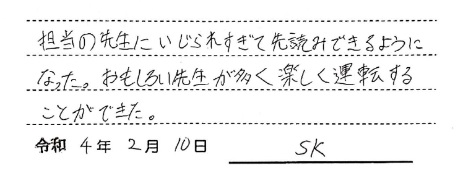 担当の先生にいじられすぎて先読みできるように
なった。おもしろい先生が多く楽しく運転する
ことができた。
令和 4年 2月 10日 SK